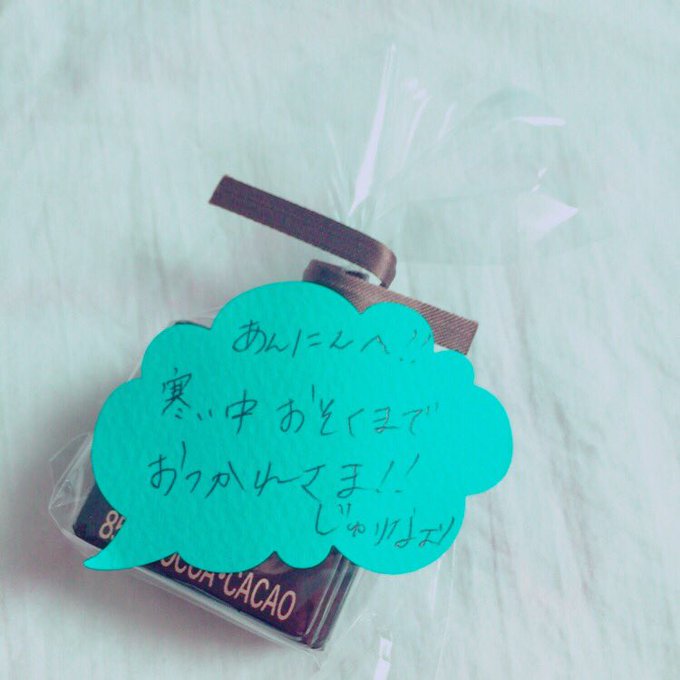 あんにんへ!!
寒い中 おそくまで
おつかれさま!!
じゅりなより
COCOA•CACAO